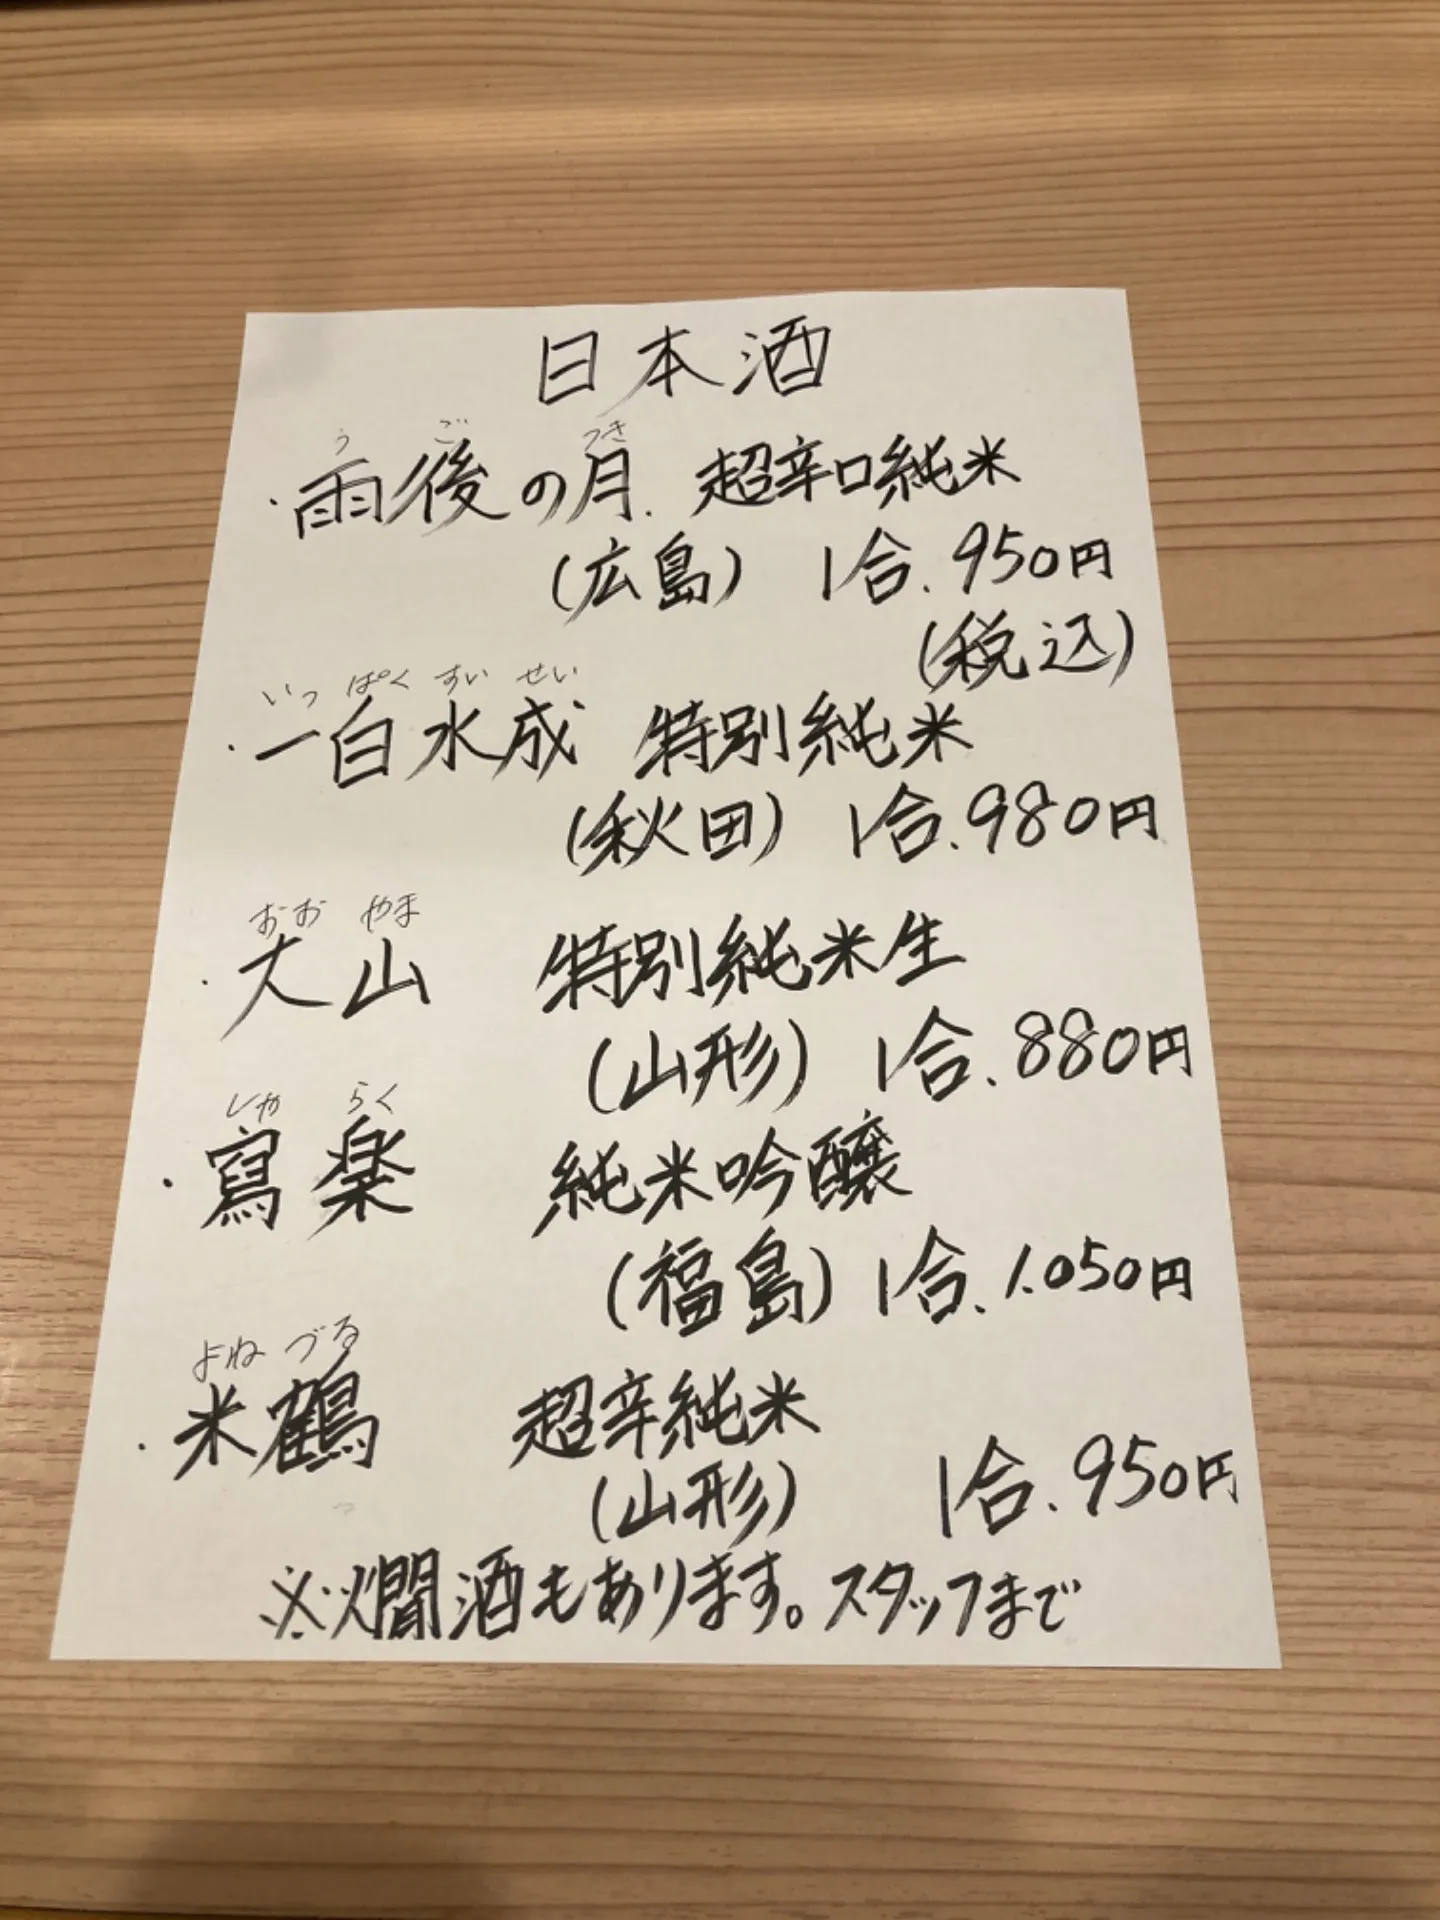 日本酒
う ご つき
・雨後の月. 超辛口純米
(広島) 1合. 950円
(税込)
いっ ぱく すい せい
・一白水成 特別純米
(秋田) 1合. 980円
おお やま
・大山 特別純米生
(山形) 1合. 880円
しゃ らく
・寫楽 純米吟醸
(福島) 1合. 1.050円
よね づる
・米鶴 超辛純米
(山形) 1合. 950円
※燗酒もあります。スタッフまで